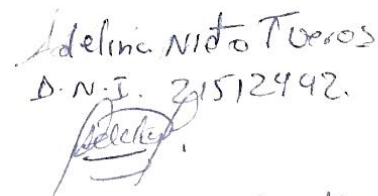 Adelina Nieto Tueros
D.N.I. 21512442.